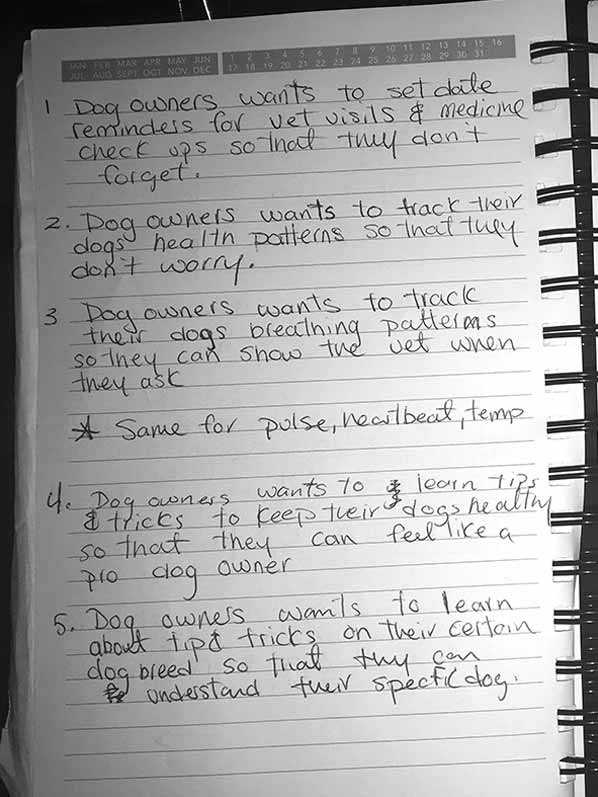 JAN FEB MAR APR MAY JUN 1 2 3 4 5 6 7 8 9 10 11 12 13 14 15 16
JUL AUG SEPT OCT NOV DEC 17 18 19 20 21 22 23 24 25 26 27 28 29 30 31
1 Dog owners wants to set date
reminders for vet visits & medicine
check ups so that they don't
forget.
2. Dog owners wants to track their
dogs health patterns so that they
don't worry.
3 Dog owners wants to track
their dogs breathing patterns
so they can show the vet when
they ask
* Same for pulse, heartbeat, temp
4. Dog owners wants to learn tips
& tricks to keep their dogs healthy
so that they can feel like a
pro dog owner
5. Dog owners wants to learn
about tip & tricks on their certain
dog breed so that they can
understand their specfic dog.